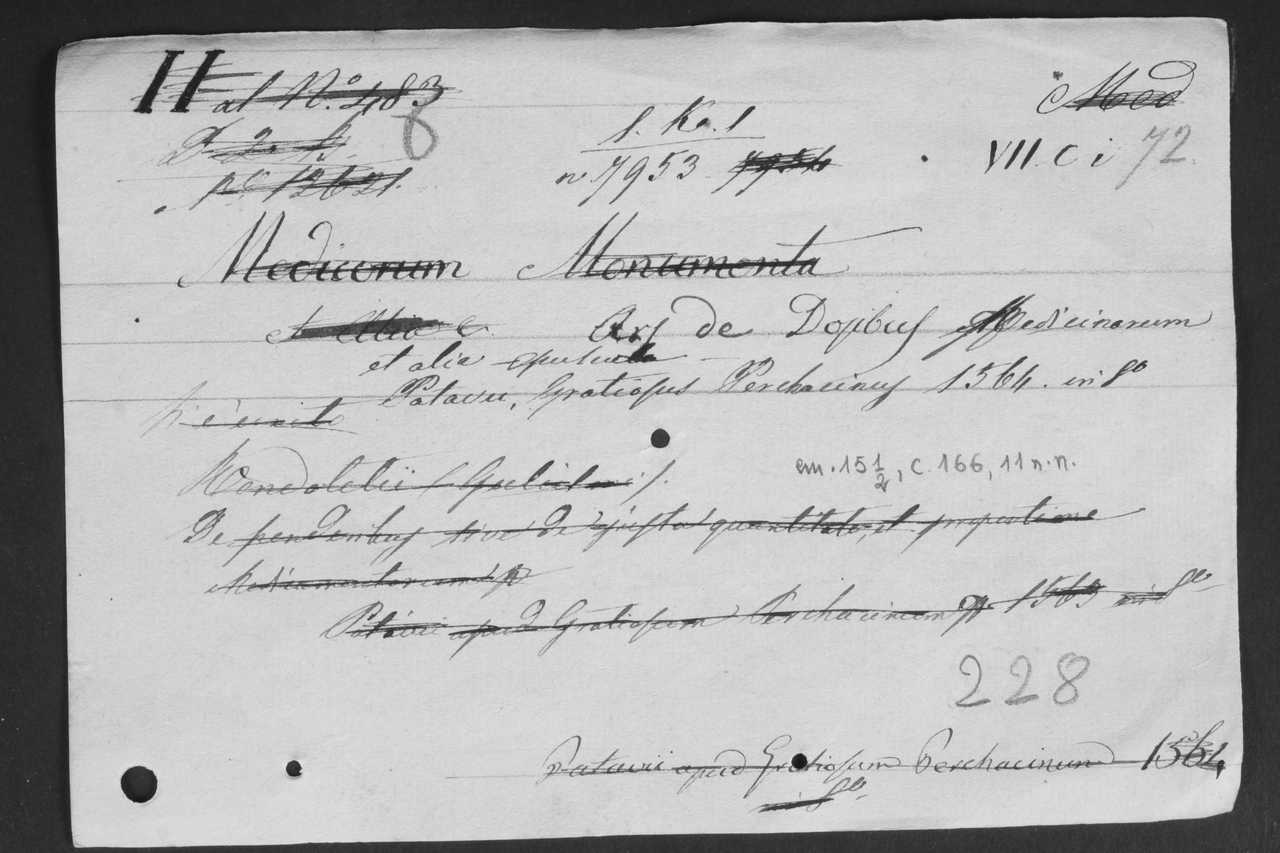 H al N.° 483
8
Med
P. 2. 
1. Ka. 1
n 7953 7954
VII. C i 72.
n.° 12621.
Medicorum Monumenta
et Alia Ars de Dosibus Medicinarum
et alia opuscula
Patavii, Gratiosus Perchacinus 1564. in 8°
è unito
Rondoletii (Gulielmi).
cm. 15 1/2, C. 166, 11 n. n.
De ponderibus sive de justa quantitate, et proportione
Medicamentorum
Patavii apud Gratiosum Perchacinum 1563 in 8°
228
Patavii apud Gratiosum Perchacinum 1564
in 8°